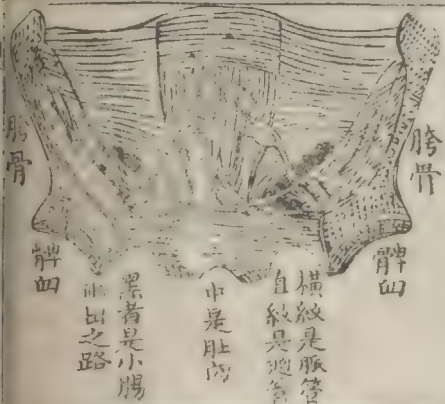 胯骨
髀臼
橫紋是脈管
直紋是迴管
中是肚內
黑者是小腸
出之路
胯骨
髀臼